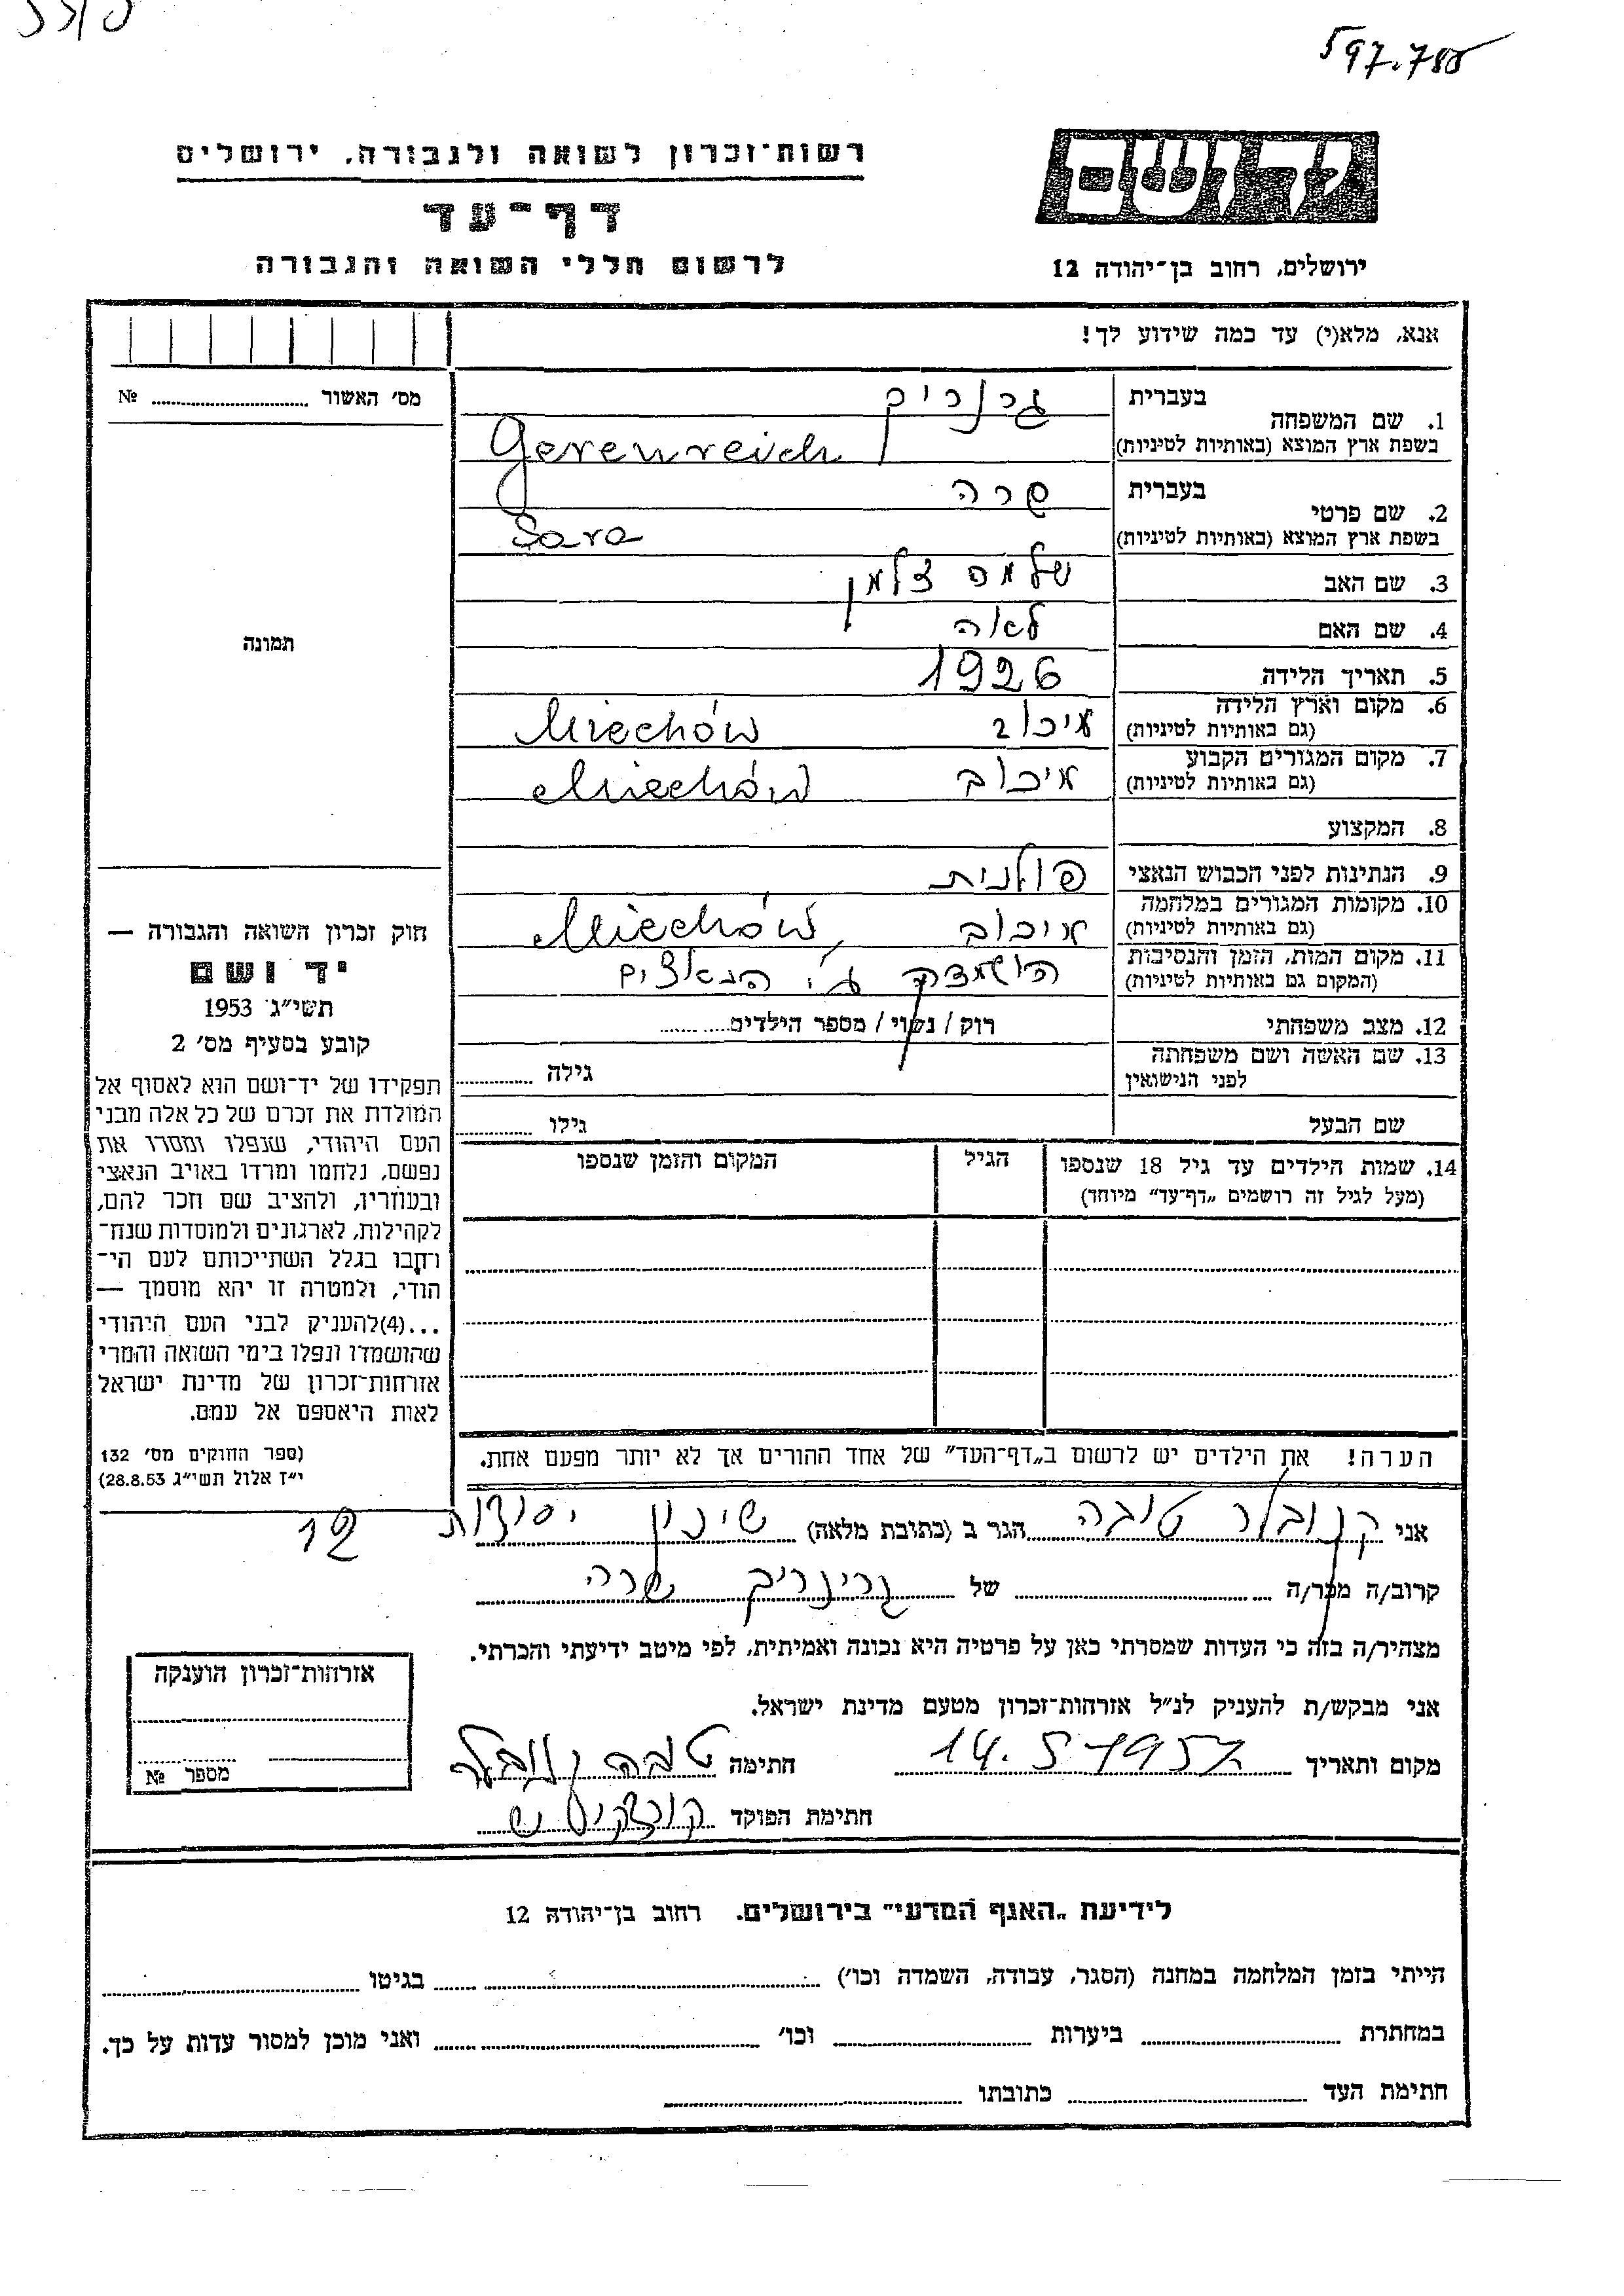 597.780
רשות־זכרון לשואה ולגבורה, ירושלים
יד ושם
דף־עד
לרשום חללי השואה והגבורה
ירושלים, רחוב בן־יהודה 12
אנא, מלא(י) עד כמה שידוע לך!
מס׳ האשור № 
1. שם המשפחה
בעברית גרנריך
בשפת ארץ המוצא (באותיות לטיניות) Gerenreich
2. שם פרטי
בעברית שרה
בשפת ארץ המוצא (באותיות לטיניות) Sara
3. שם האב שלמה צלמן
4. שם האם לאה
תמונה
5. תאריך הלידה 1926
6. מקום וארץ הלידה
(גם באותיות לטיניות) מיכוב Miechów
7. מקום המגורים הקבוע
(גם באותיות לטיניות) מיכוב Miechów
8. המקצוע
9. הנתינות לפני הכבוש הנאצי פולנית
10. מקומות המגורים במלחמה
(גם באותיות לטיניות) מיכוב, Miechów
11. מקום המות, הזמן והנסיבות
(המקום גם באותיות לטיניות) הושמדה ע״י הנאצים
12. מצב משפחתי רוק / נשוי / מספר הילדים
13. שם האשה ושם משפחתה
לפני הנישואין גילה
שם הבעל גילו
14. שמות הילדים עד גיל 18 שנספו
(מעל לגיל זה רושמים „דף־עד״ מיוחד)
הגיל
המקום והזמן שנספו
חוק זכרון השואה והגבורה —
יד ושם
תשי״ג 1953
קובע בסעיף מס׳ 2
תפקידו של יד־ושם הוא לאסוף אל
המולדת את זכרם של כל אלה מבני
העם היהודי, שנפלו ומסרו את
נפשם, נלחמו ומרדו באויב הנאצי
ובעוזריו, ולהציב שם וזכר להם,
לקהילות, לארגונים ולמוסדות שנח־
רבו בגלל השתייכותם לעם הי־
הודי, ולמטרה זו יהא מוסמך —
...(4)להעניק לבני העם היהודי
שהושמדו ונפלו בימי השואה והמרי
אזרחות־זכרון של מדינת ישראל
לאות היאספם אל עמם.
(ספר החוקים מס׳ 132
י״ז אלול תשי״ג 28.8.53)
הערה! את הילדים יש לרשום ב„דף־העד״ של אחד ההורים אך לא יותר מפעם אחת.
אני קנובלר טובה הגר ב (כתובת מלאה) שיכון יסודות 12
קרוב/ה מכר/ה של גרינריך שרה
מצהיר/ה בזה כי העדות שמסרתי כאן על פרטיה היא נכונה ואמיתית, לפי מיטב ידיעתי והכרתי.
אני מבקש/ת להעניק לנ״ל אזרחות־זכרון מטעם מדינת ישראל.
מקום ותאריך 14.5.1957 חתימה טובה קנובלר
חתימת הפוקד
אזרחות־זכרון הוענקה
מספר №
לידיעת „האגף המדעי״ בירושלים. רחוב בן־יהודה 12
הייתי בזמן המלחמה במחנה (הסגר, עבודה, השמדה וכו׳) בגיטו
במחתרת ביערות וכו׳ ואני מוכן למסור עדות על כך.
חתימת העד כתובתו